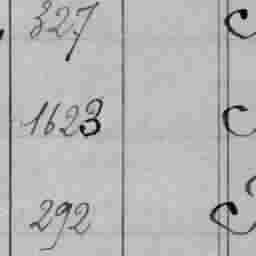 327
1623
292